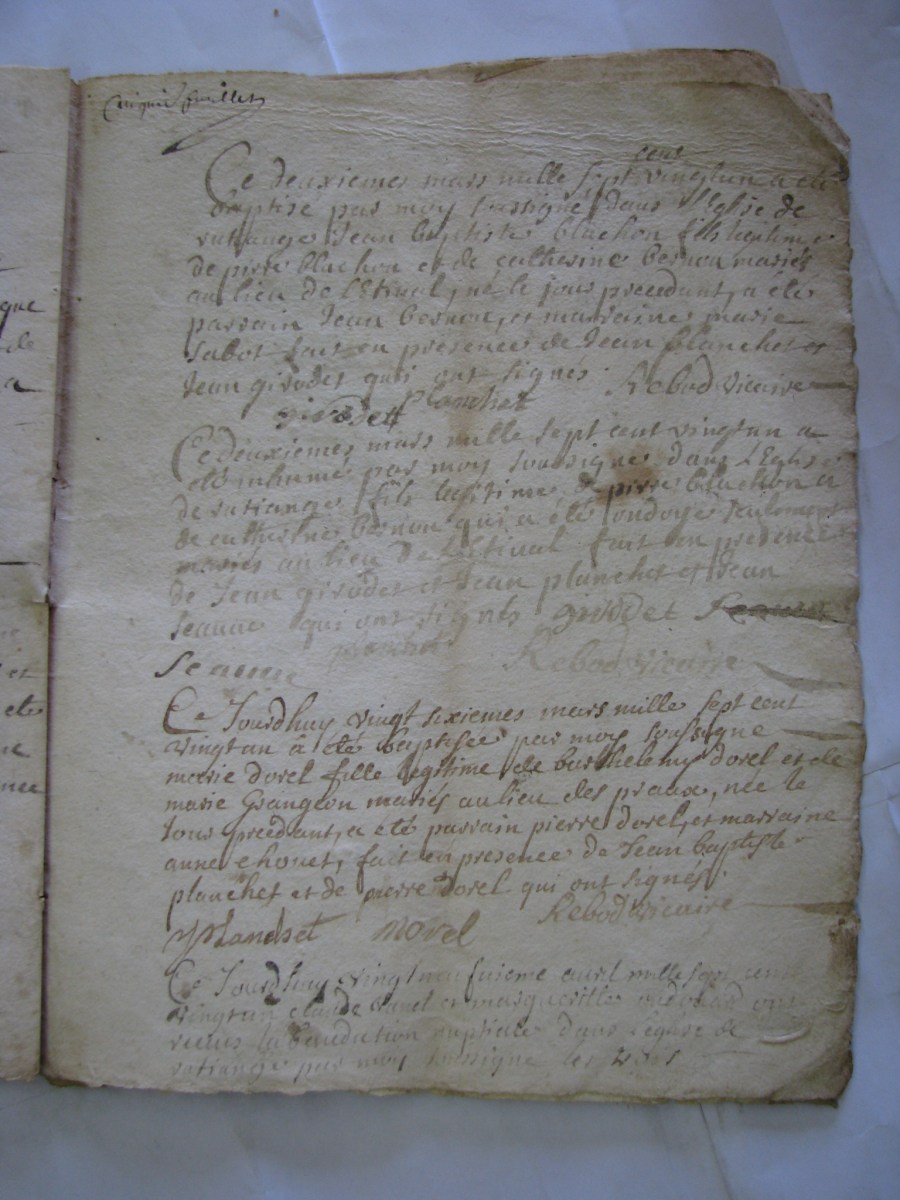 Cinquie feuillet
cens
Ce deuxiemes mars mille sept vingtun a ete
baptisé par moy soussigné dans l'Eglise de
ratiange Jean baptiste blachon fils legitime
de pierre blachon et de catherine bernou mariés
au lieu de l'Estival, né le jour precedant, a été
parrain Jean bernou, et marraine marie
sabot fait en presence de Jean planchet et
Jean girodet qui ont signes Rebod vicaire
girodet planchet
Ce deuxiemes mars mille sept cent vingtun a
eté inhumé par moy soussigné dans L'Eglise
de ratiange fils legitime de pierre blachon et
de catherine bernou qui a été ondoyé seulement
mariés au lieu de l'Estival fait en presence
de Jean girodet et Jean planchet et Jean
seauue qui ont signés girodet
planchet
seauue Rebod vicaire
Ce Jourdhuy vingt sixiemes mars mille sept cent
vingtun a été baptisée par moy soussigne
marie dorel fille legitime de barthelemy dorel et de
marie Grangeon mariés au lieu des preaux, née le
Jour precedant, a eté parrain pierre dorel, et marraine
anne chouet, fait en presence de Jean baptiste
planchet et de pierre dorel qui ont signés
Rebod vicaire
JPlanchet Dorel
Ce Jourdhuy vingt neufuieme auril mille sept cent
vingtun claude et ont
receus la benediction nuptiale dans l'eglise de
ratiange par moy soussigne les
que
de
a
et
ete